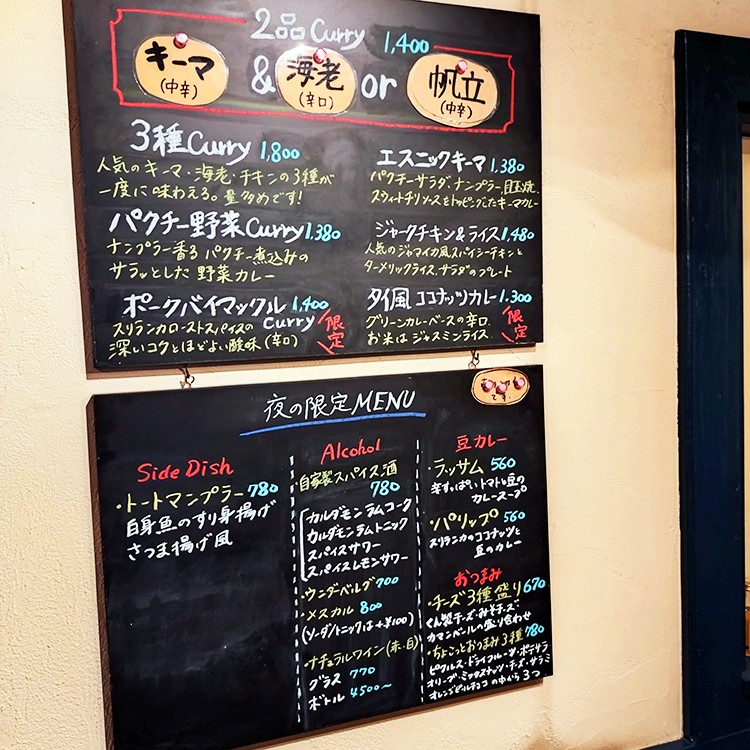 2品 Curry 1,400
キーマ
(中辛)
&
海老
(辛口)
or
帆立
(中辛)
3種Curry 1,800
人気のキーマ・海老・チキンの3種が
一度に味わえる。量多めです!
パクチー野菜Curry 1,380
ナンプラー香るパクチー煮込みの
サラッとした野菜カレー
ポークバイマックル 1,400
Curry
スリランカローストスパイスの
深いコクとほどよい酸味(辛口)
限定
エスニックキーマ 1,380
パクチーサラダ、ナンプラー、目玉焼、
スウィートチリソースをトッピングしたキーマカレー
ジャークチキン&ライス 1,480
人気のジャマイカ風スパイシーチキンと
ターメリックライス、サラダのプレート
タイ風ココナッツカレー 1,300
グリーンカレーベースの辛口、
お米はジャスミンライス、
限定
夜の限定MENU
です
Side Dish
・トートマンプラー 780
白身魚のすり身揚げ
さつま揚げ風
Alcohol
・自家製スパイス酒
780
カルダモンラムコーク
カルダモンラムトニック
スパイスサワー
スパイスレモンサワー
・ウンダーベルグ 700
・メスカル 800
(ソーダ/トニックは+¥100)
・ナチュラルワイン(赤・白)
グラス 770
ボトル 4500～
豆カレー
・ラッサム 560
辛すっぱい、トマトと豆の
カレースープ
・パリップ 560
スリランカのココナッツと
豆のカレー
おつまみ
・チーズ3種盛り 670
くん製チーズ・みそチーズ・
カマンベールの盛り合わせ
・ちょこっとおつまみ3種 780
ピクルス・ドライフルーツ・ポテサラ
オリーブ・ミックスナッツ・チーズ・サラミ
オレンジピールチョコの中から3つ